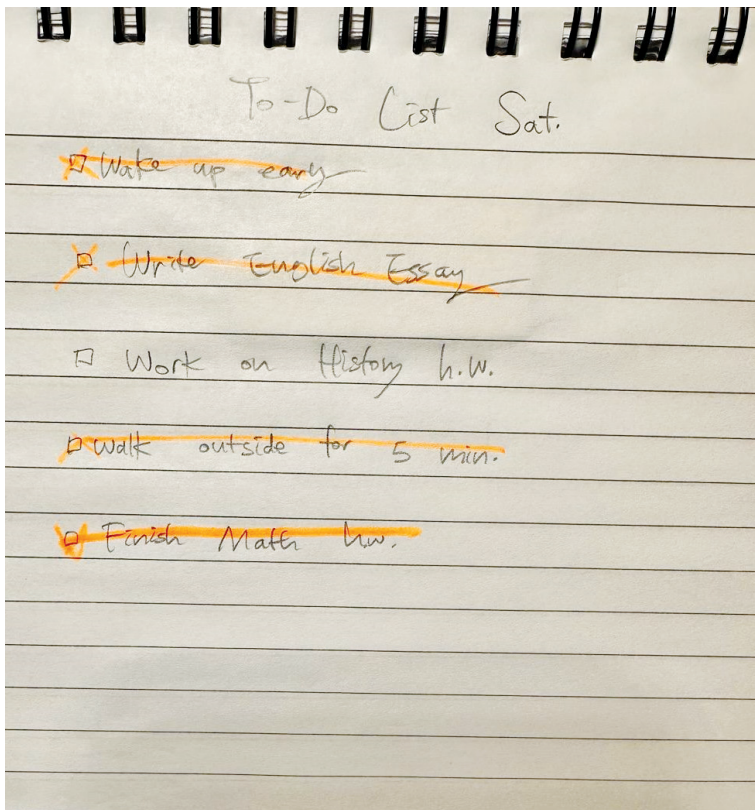 To-Do List Sat.
Wake up early
Write English Essay
Work on History h.w.
Walk outside for 5 min.
Finish Math h.w.